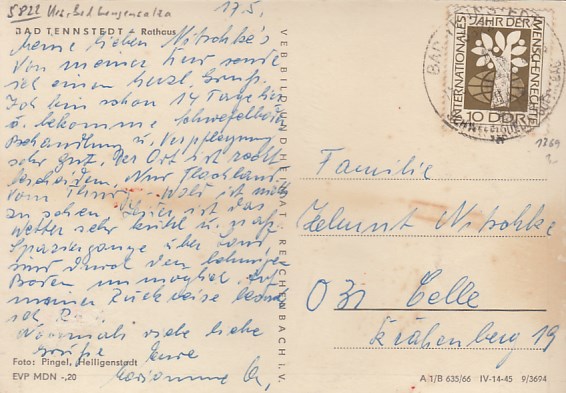 5822 17.5.
BAD TENNSTEDT - Rathaus
Meine lieben Nitschke's
Von meiner Kur sende
ich einen herzl. Gruß.
Ich bin schon 14 Tage hier
u. bekomme Schwefelbäder
Behandlung u. Verpflegung
sehr gut. Der Ort ist recht
bescheiden. Nur Flachland
vom Thür. Wald ist nichts
zu sehen. Hier ist das
Wetter sehr kühl u. naß
Spaziergänge über Land
sind durch den lehmigen
Boden unmöglich. Auf
meiner Rückreise
ich
Nochmals viele liebe
Grüße Eure
Marianne
Foto: Pingel, Heiligenstadt
EVP MDN -,20
VEB BILD UND HEIMAT REICHENBACH i. V.
INTERNATIONALES
JAHR DER
MENSCHENRECHTE
10 DDR
BAD
Familie
Helmut Nitschke
031 Celle
Krähenberg 19
A 1/B 635/66 IV-14-45 9/3694